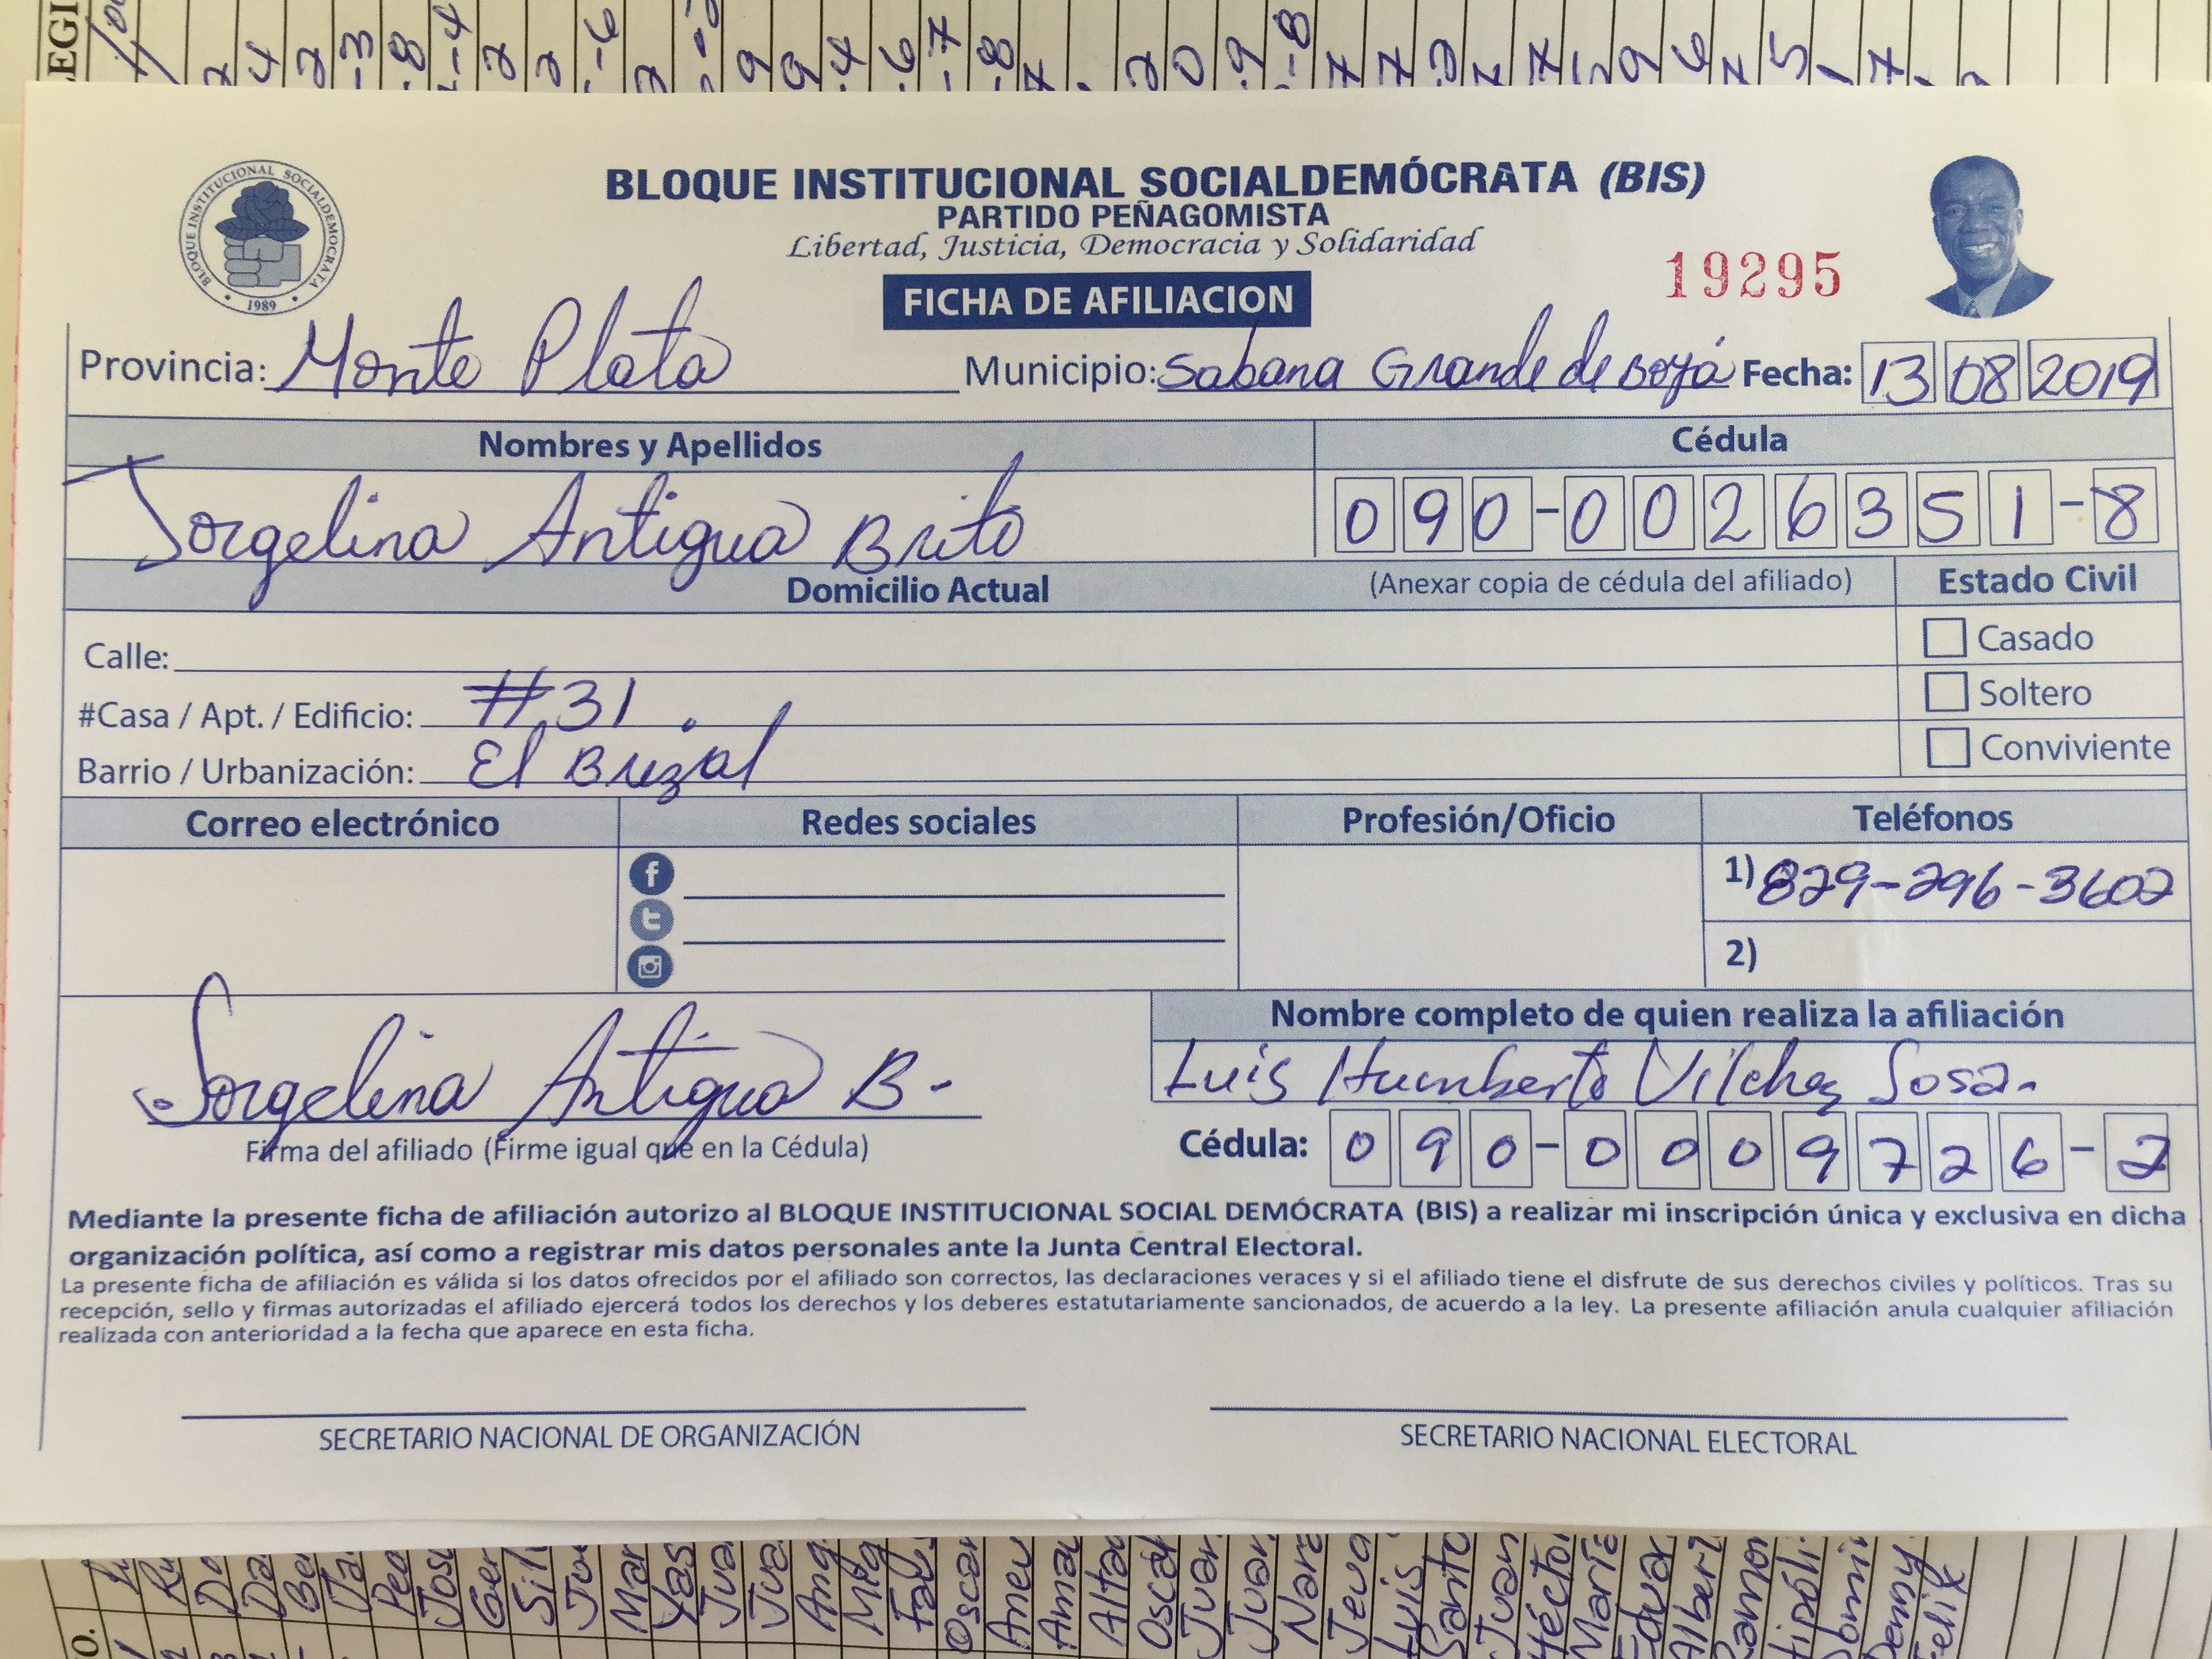 BLOQUE INSTITUCIONAL SOCIALDEMÓCRATA (BIS)
PARTIDO PEÑAGOMISTA
Libertad, Justicia, Democracia y Solidaridad
BLOQUE INSTITUCIONAL SOCIALDEMOCRATA
1989
19295
FICHA DE AFILIACION
Provincia: Monte Plata Municipio: Sabana Grande de Boyá Fecha: 13 08 2019
Nombres y Apellidos Cédula
Jorgelina Antigua Brito 090-0026351-8
Domicilio Actual (Anexar copia de cédula del afiliado) Estado Civil
Calle: Casado
#Casa / Apt. / Edificio: #31. Soltero
Barrio / Urbanización: El Brezal Conviviente
Correo electrónico Redes sociales Profesión/Oficio Teléfonos
1) 829-296-3602
2)
Jorgelina Antigua B-
Firma del afiliado (Firme igual que en la Cédula)
Nombre completo de quien realiza la afiliación
Luis Humberto Vilchez Sosa.
Cédula: 090-0009726-2
Mediante la presente ficha de afiliación autorizo al BLOQUE INSTITUCIONAL SOCIAL DEMÓCRATA (BIS) a realizar mi inscripción única y exclusiva en dicha
organización política, así como a registrar mis datos personales ante la Junta Central Electoral.
La presente ficha de afiliación es válida si los datos ofrecidos por el afiliado son correctos, las declaraciones veraces y si el afiliado tiene el disfrute de sus derechos civiles y políticos. Tras su
recepción, sello y firmas autorizadas el afiliado ejercerá todos los derechos y los deberes estatutariamente sancionados, de acuerdo a la ley. La presente afiliación anula cualquier afiliación
realizada con anterioridad a la fecha que aparece en esta ficha.
SECRETARIO NACIONAL DE ORGANIZACIÓN SECRETARIO NACIONAL ELECTORAL